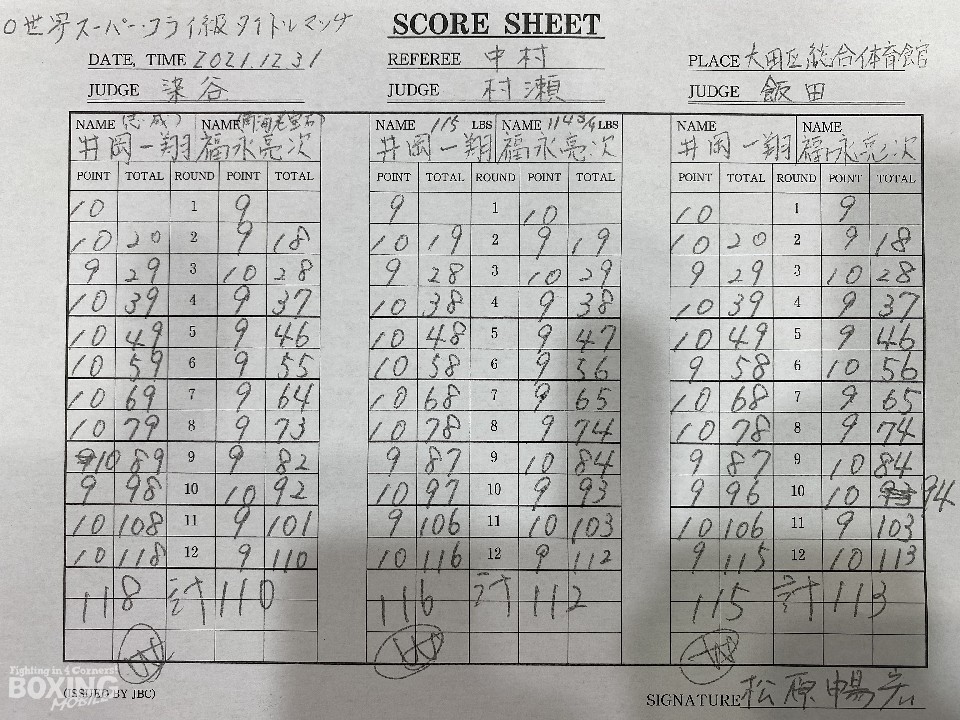 O世界スーパー・フライ級タイトルマッチ
SCORE SHEET
DATE, TIME 2021.12.31 REFEREE 中村 PLACE 大田区総合体育館
JUDGE 染谷 JUDGE 村瀬 JUDGE 飯田
NAME (志成) NAME NAME 115 LBS NAME 114 3/4 LBS NAME NAME
井岡一翔 福永亮次 井岡一翔 福永亮次 井岡一翔 福永亮次
POINT TOTAL ROUND POINT TOTAL POINT TOTAL ROUND POINT TOTAL POINT TOTAL ROUND POINT TOTAL
10 1 9 9 1 10 10 1 9
10 20 2 9 18 10 19 2 9 19 10 20 2 9 18
9 29 3 10 28 9 28 3 10 29 9 29 3 10 28
10 39 4 9 37 10 38 4 9 38 10 39 4 9 37
10 49 5 9 46 10 48 5 9 47 10 49 5 9 46
10 59 6 9 55 10 58 6 9 56 9 58 6 10 56
10 69 7 9 64 10 68 7 9 65 10 68 7 9 65
10 79 8 9 73 10 78 8 9 74 10 78 8 9 74
10 89 9 9 82 9 87 9 10 84 9 87 9 10 84
9 98 10 10 92 10 97 10 9 93 9 96 10 10 94
10 108 11 9 101 9 106 11 10 103 10 106 11 9 103
10 118 12 9 110 10 116 12 9 112 9 115 12 10 113
118 計 110 116 計 112 115 計 113
W W W
Fighting in 4 Corners!
BOXING
MOBILE
(ISSUED BY JBC)
SIGNATURE 松原暢宏